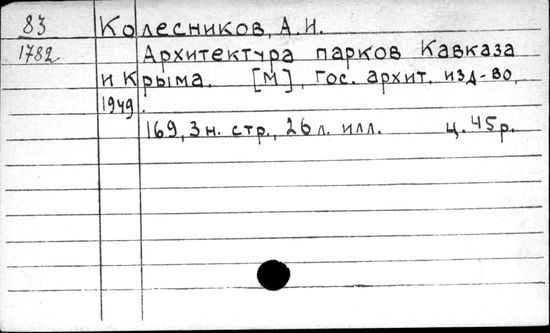 83 Колесников, А. И.
1782 Архитектура парков Кавказа
и Крыма. [М], Гос. архит. изд-во,
1949.
169, 3 н. стр., 26 л. илл. ц. 45 р.